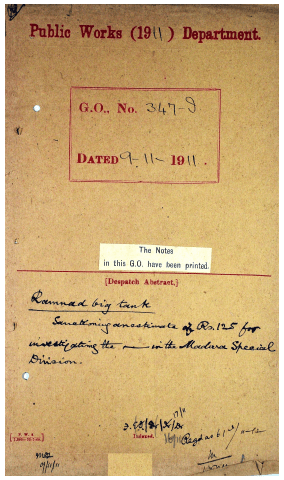 Public Works (1911) Department.
G.O., No. 347-I
DATED 9-11-1911.
The Notes
in this G.O. have been printed.
[Despatch Abstract.]
Ramnad big tank
Sanctioning an estimate of Rs. 125 for
investigating the — in the Madura Special
Division.
P. W. A
Indexed.